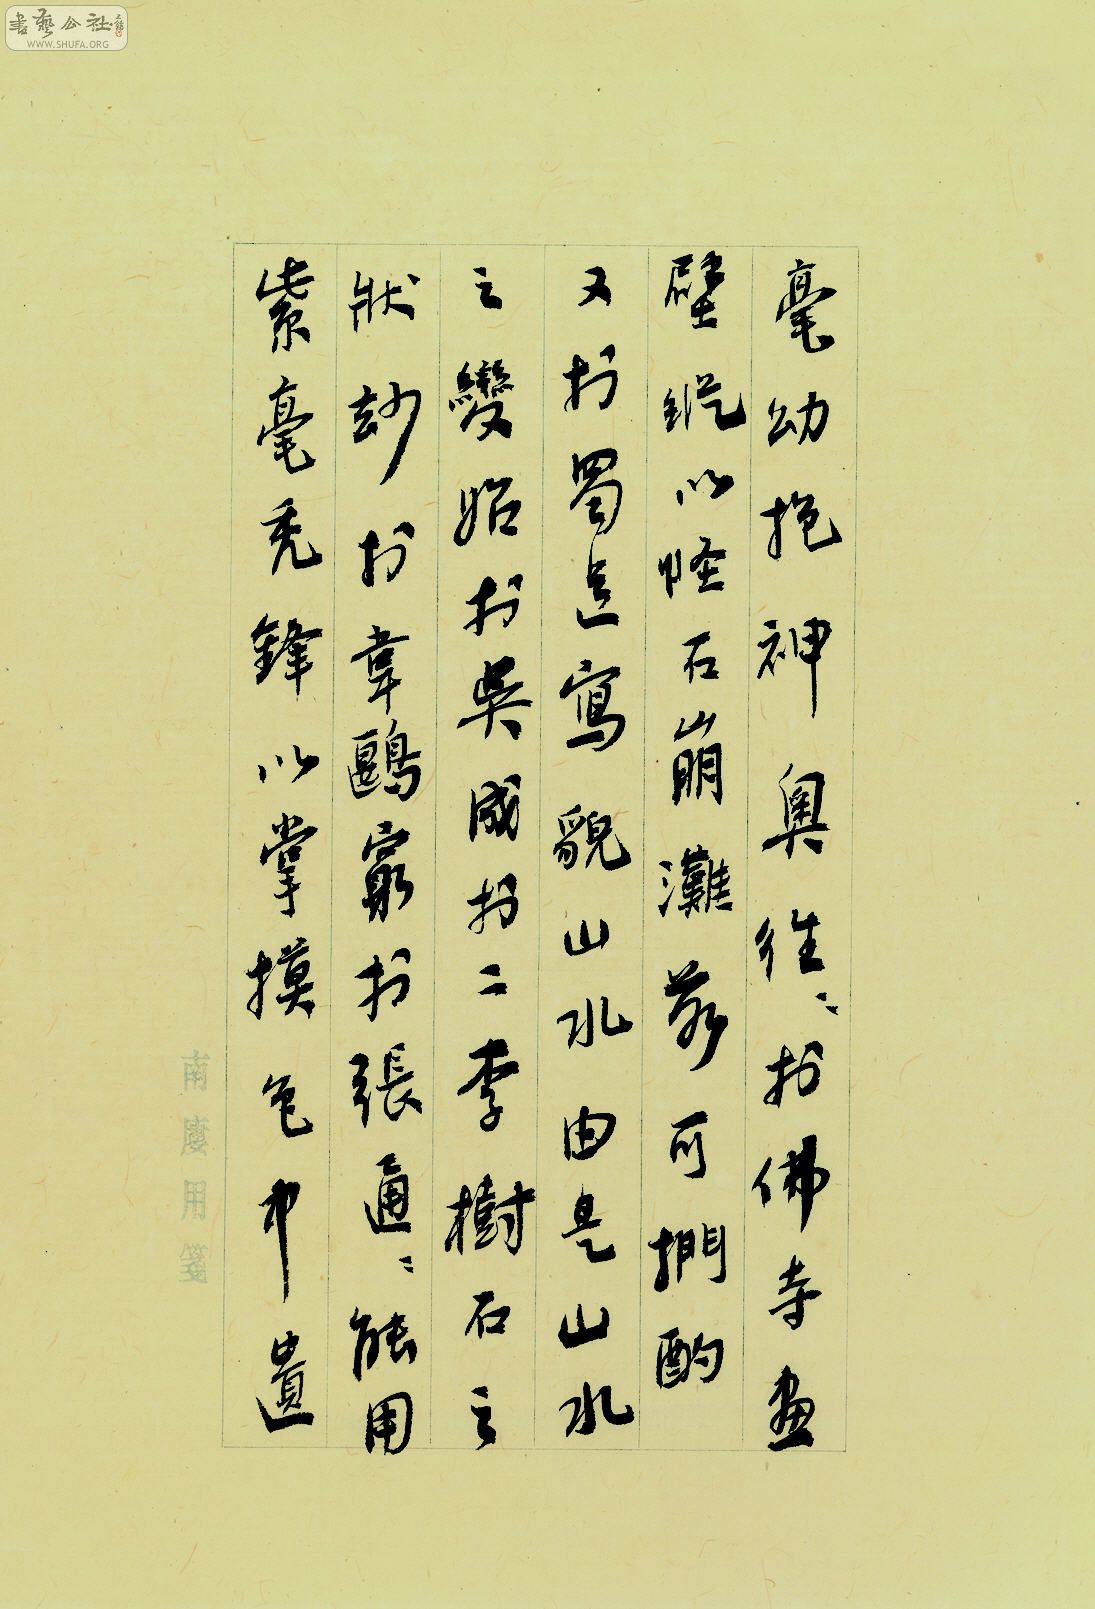 毫幼抱神奧往〻於佛寺畫
壁縱以怪石崩灘若可捫酌
又於蜀道寫貌山水由是山水
之變始於吳成於二李樹石之
狀玅於韋鶠窮於張通〻能用
紫毫禿鋒以掌摸色中遺
南廔用箋
書藝公社
WWW.SHUFA.ORG